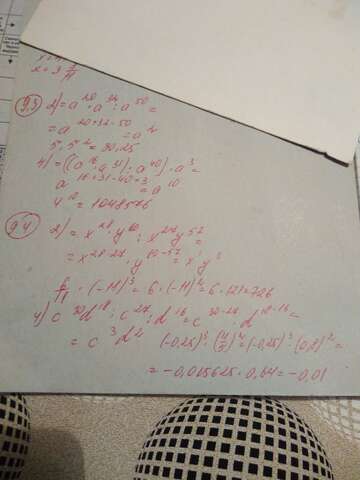 x + 3 7/11
93 2) = a²⁰ · a³² : a⁵⁰ =
= a²⁰⁺³²⁻⁵⁰ = a²
5,5² = 30,25
4) = ((a¹⁶ · a³¹) : a⁴⁰) · a³ =
a¹⁶⁺³¹⁻⁴⁰⁺³ = a¹⁰
4¹⁰ = 1048576
94 2) = x²⁸ · y⁶⁰ : x²⁷ y⁵⁷ =
= x²⁸⁻²⁷ · y⁶⁰⁻⁵⁷ = x y³
· (-11)³ = 6 · (-11)² = 6 · 121 = 726
4) c³⁰ d¹⁸ : c²⁷ : d¹⁶ = c³⁰⁻²⁷ · d¹⁸⁻¹⁶ =
= c³ d² (-0,25)³ · (4/5)² = (-0,25)³ · (0,8)² =
= -0,015625 · 0,64 = -0,01